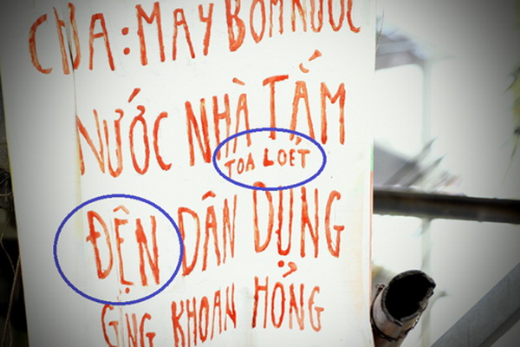 CỬA: MAY BƠM NƯỚC
NƯỚC NHÀ TẤM
TOA LOÉT
ĐỆN DÂN DỤNG
GING KHOAN HỎNG